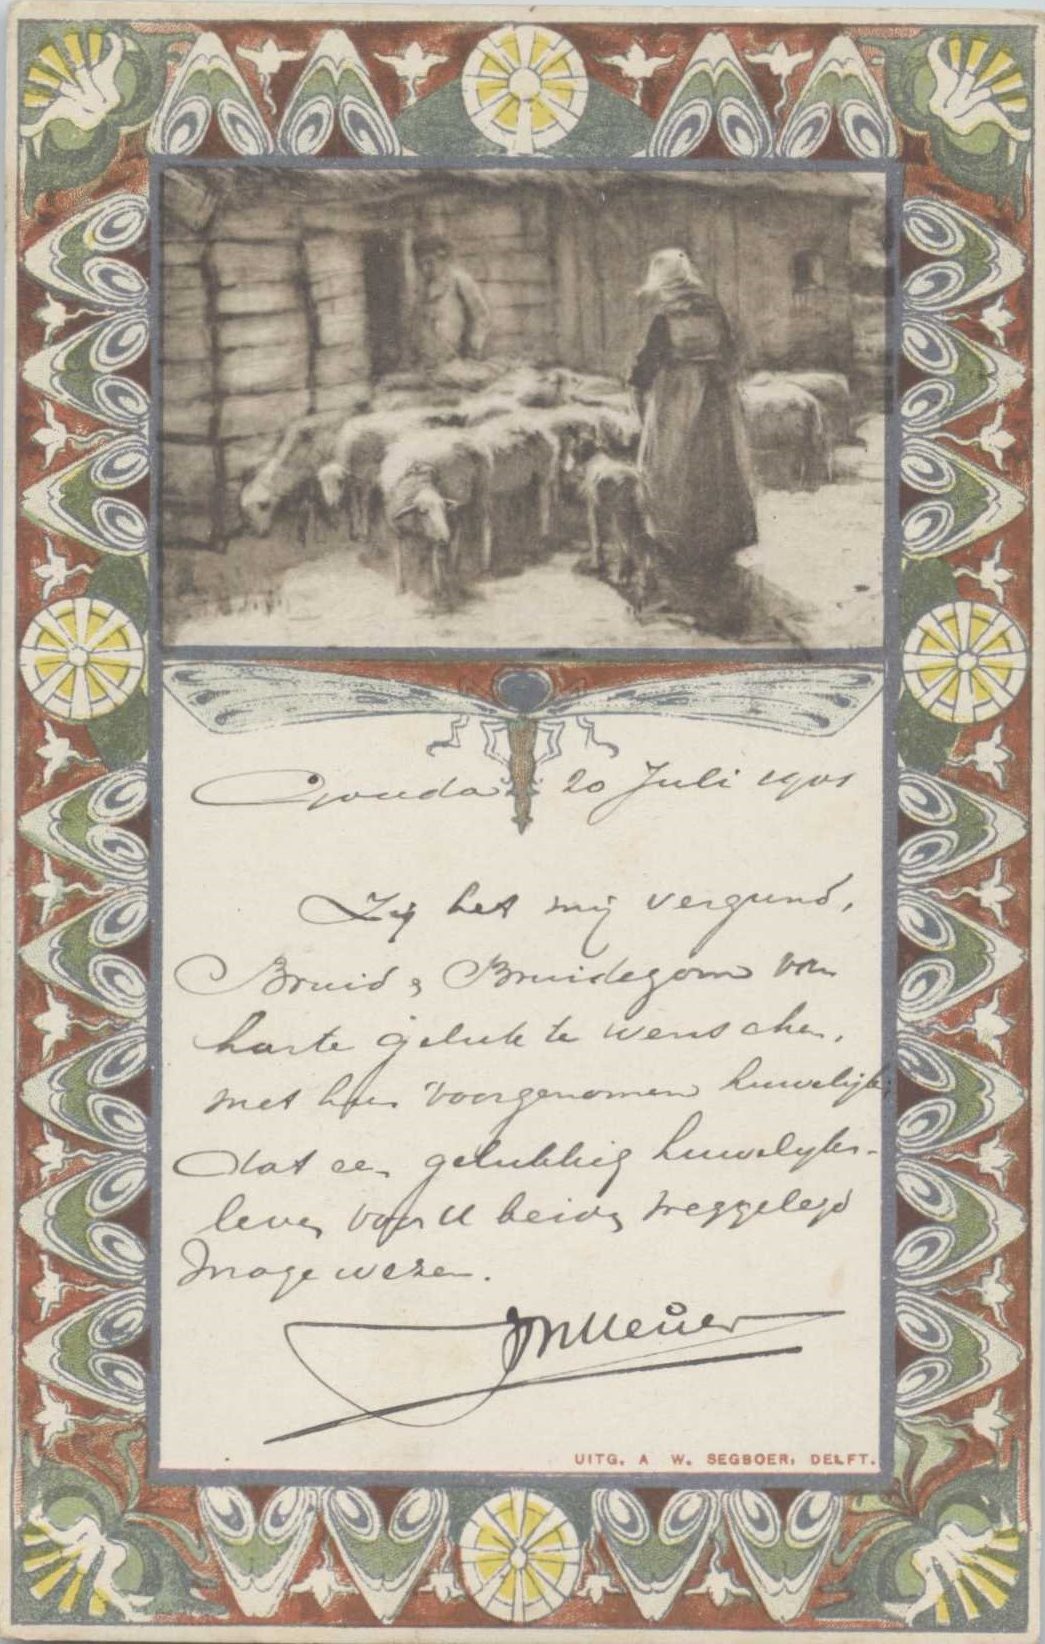 Gouda 20 Juli 1901
Zij het mij vergund,
Bruid & Bruidegom van
harte geluk te wenschen,
met hun voorgenomen huwelijk,
dat een gelukkig huwelijks-
leven voor U beiden weggelegd
moge wezen.
UITG. A W. SEGBOER, DELFT.